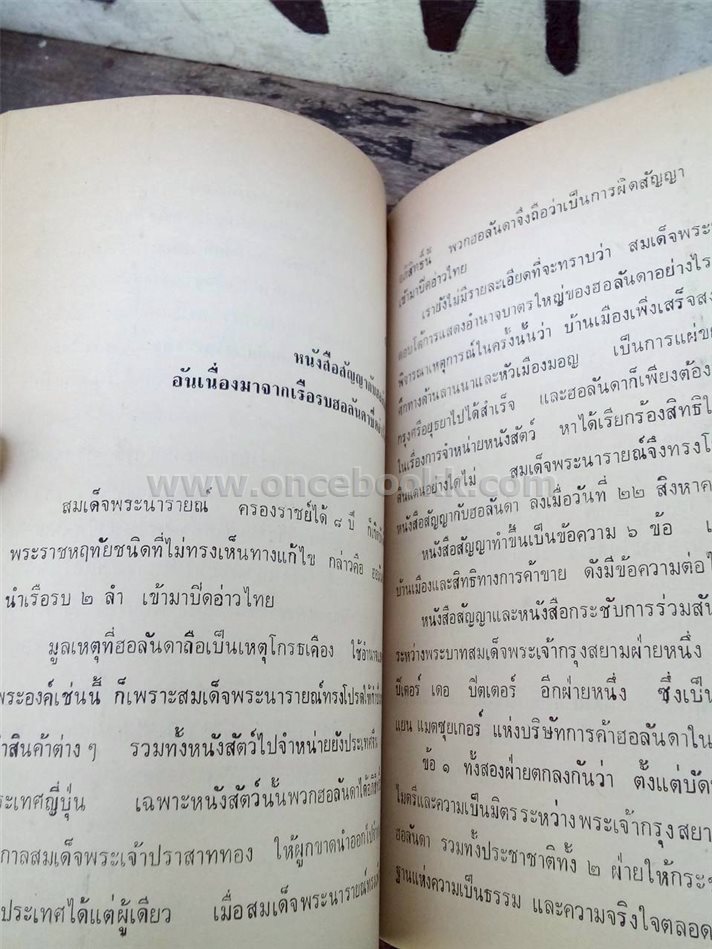 หนังสือสัญญา
อันเนื่องมาจากเรือรบฮอลันดาปิด
สมเด็จพระนารายณ์ ครองราชย์ได้ ๘ ปี
พระราชหฤทัยชนิดที่ไม่ทรงเห็นทางแก้ไข กล่าวคือ
นำเรือรบ ๒ ลำ เข้ามาปิดอ่าวไทย
มูลเหตุที่ฮอลันดาถือเป็นเหตุโกรธเคือง
พระองค์เช่นนี้ ก็เพราะสมเด็จพระนารายณ์ทรงโปรดให้
สินค้าต่าง ๆ รวมทั้งหนังสัตว์ไปจำหน่ายยังประเทศจีน
ประเทศญี่ปุ่น เฉพาะหนังสัตว์นั้นพวกฮอลันดาได้
กาลสมเด็จพระเจ้าปราสาททอง ให้ผูกขาดนำออกไป
ประเทศได้แต่ผู้เดียว เมื่อสมเด็จพระนารายณ์
www.oncebookk.com
พวกฮอลันดาจึงถือว่าเป็นการผิดสัญญา
เข้ามาปิดอ่าวไทย
เรายังไม่มีรายละเอียดที่จะทราบว่า สมเด็จพระ
ตอบโต้การแสดงอำนาจบาตรใหญ่ของฮอลันดาอย่างไร
พิจารณาเหตุการณ์ในครั้งนั้นว่า บ้านเมืองเพิ่งเสร็จ
ศึกทางด้านลานนาและหัวเมืองมอญ เป็นการแผ่
กรุงศรีอยุธยาไปได้สำเร็จ และฮอลันดาก็เพียงต้อง
ในเรื่องการจำหน่ายหนังสัตว์ หาได้เรียกร้องสิทธิ
ดินแดนอย่างใดไม่ สมเด็จพระนารายณ์จึงทรง
หนังสือสัญญากับฮอลันดา ลงเมื่อวันที่ ๒๒ สิงหาค
หนังสือสัญญาทำขึ้นเป็นข้อความ ๖ ข้อ
บ้านเมืองและสิทธิทางการค้าขาย ดังมีข้อความต่อ
หนังสือสัญญาและหนังสือกระชับการร่วม
ระหว่างพระบาทสมเด็จพระเจ้ากรุงสยามฝ่ายหนึ่ง
ปีเตอร์ เดอ ปิตเตอร์ อีกฝ่ายหนึ่ง ซึ่งเป็น
แยน แมตซุยเกอร์ แห่งบริษัทการค้าฮอลันดาใน
ข้อ ๑ ทั้งสองฝ่ายตกลงกันว่า ตั้งแต่บัด
ไมตรีและความเป็นมิตรระหว่างพระเจ้ากรุงสยาม
ฮอลันดา รวมทั้งประชาชาติทั้ง ๒ ฝ่ายให้กระ
ฐานแห่งความเป็นธรรม และความจริงใจตลอด